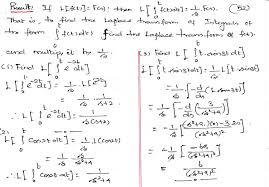 Result: If L[f(t)] = F(s), then L[∫₀ᵗ f(t)dt] = 1/s F(s). (52)
That is, to find the Laplace transform of Integrals of
the form ∫₀ᵗ f(t)dt, find the Laplace transform of f(t)
and multiply it by 1/s
(1) Find L[∫₀ᵗ e^-2t dt]
L[∫₀ᵗ e^-2t dt] = 1/s L[e^-2t]
= 1/s · 1/(s+2)
= 1/(s(s+2))
2) L[∫₀ᵗ cosat dt] = 1/s L(cosat)
= 1/s · s/(s²+a²)
∴ L[∫₀ᵗ cosat dt] = 1/(s²+a²)
(3) Find L[∫₀ᵗ t.sin3t dt]
L[∫₀ᵗ t.sin3t dt] = 1/s L[t.sin3t]
= 1/s [-d/ds 3/(s²+9)]
= -1/s [((s²+9).(0)-3.2s)/(s²+9)²]
= -1/s [-6s/(s²+9)²]
= 6/(s²+9)²